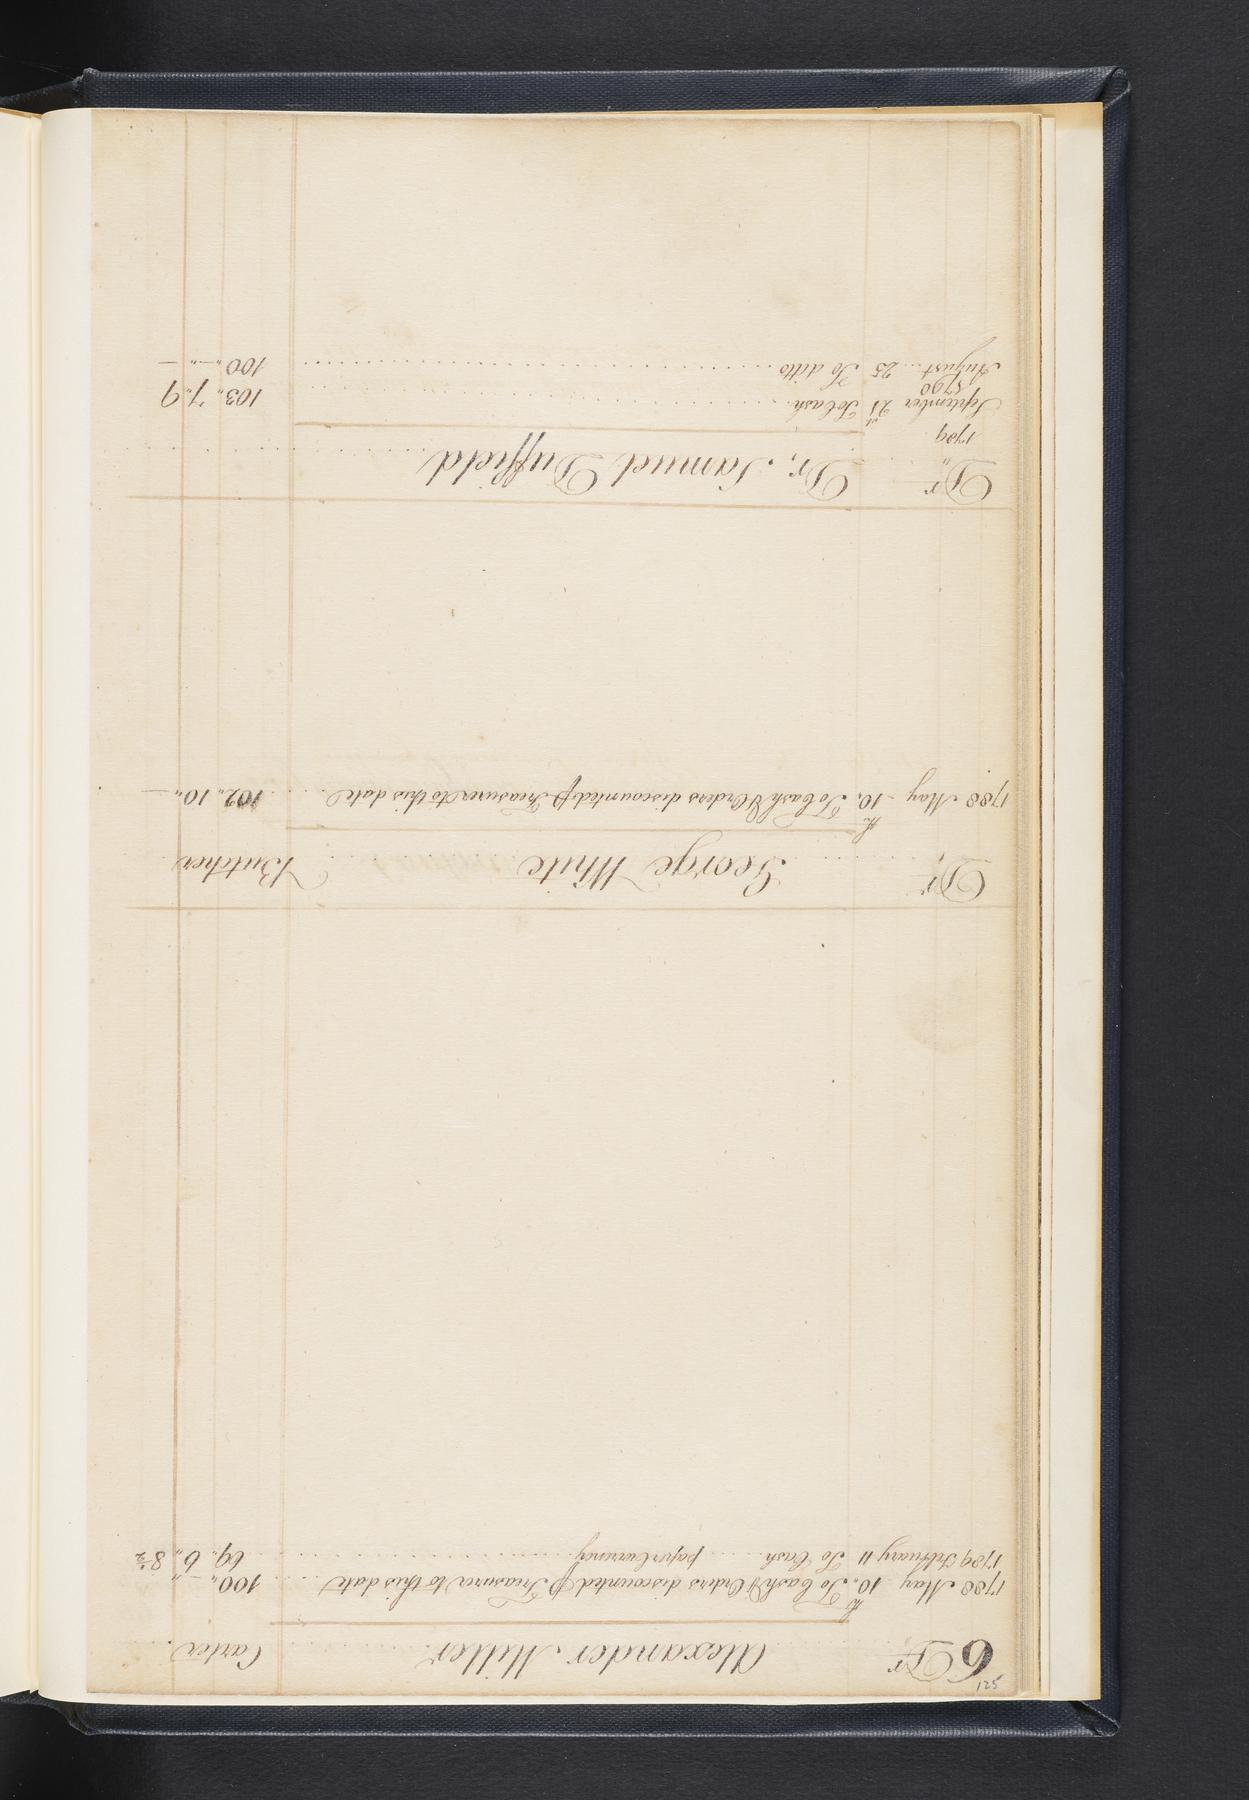 125
6 Dr. Alexander Miller Carter
1788 May 10th To Cash & Orders discounted ⅌ Treasurer to this date 100 " — " —
1789 February 11 To Cash paper Currency 69 " 6 " 8½
Dr. George White Butcher
1788 May 10th To Cash & Orders discounted ⅌ Treasurer to this date 102 " 10 " —
Dr. Dr. Samuel Duffield
1789
September 21st To Cash 103 " 7 " 9
1790
August 25 To ditto 100 " — " —